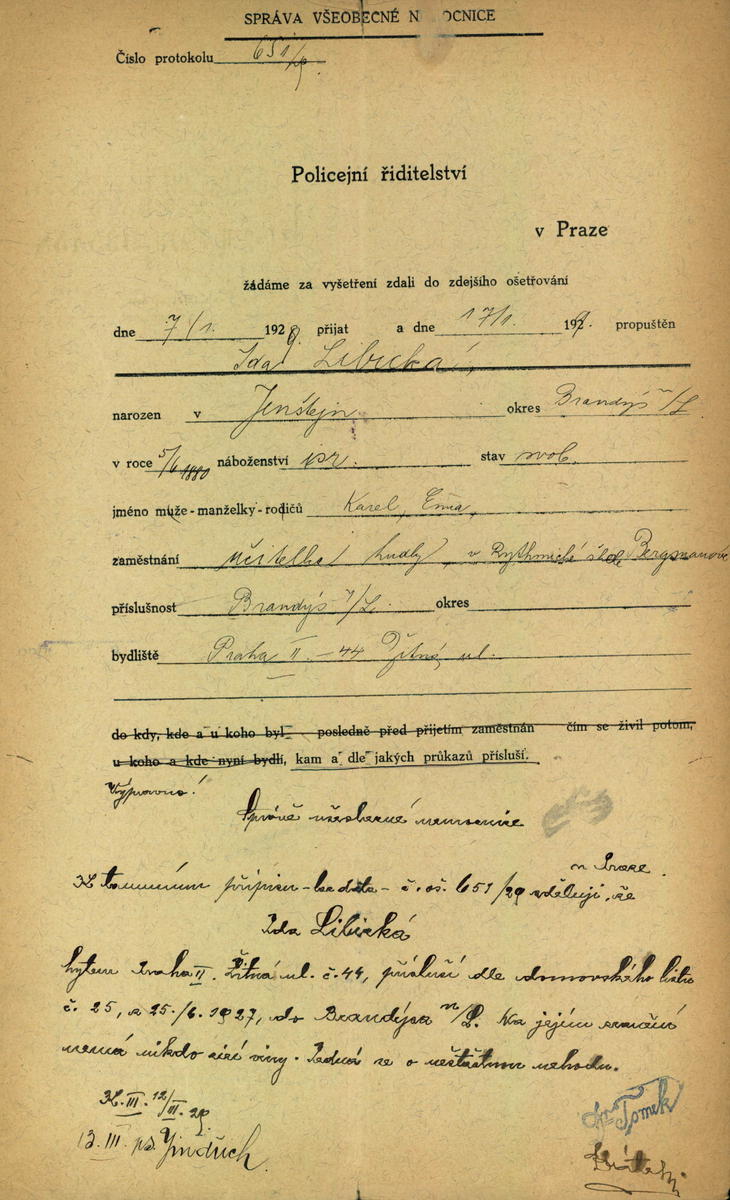 SPRÁVA VŠEOBECNÉ N OCNICE
Číslo protokolu 651/29
Policejní řiditelství
v Praze
žádáme za vyšetření zdali do zdejšího ošetřování
dne 7/1. 1929. přijat a dne 17/1. 1929. propuštěn
Ida Libická,
narozen v Jenštejn okres Brandýs n/L
v roce 5/6 1880 náboženství isr. stav svob.
jméno muže-manželky-rodičů Karel, Ema,
zaměstnání učitelka hudby, v Rythmické škole Bergmanové
příslušnost Brandýs n/L. okres
bydliště Praha II. – 44 Žitná ul.
do kdy, kde a u koho byl posledně před přijetím zaměstnán čím se živil potom,
u koho a kde nyní bydlí, kam a dle jakých průkazů přísluší.
Výpravno!
Správě všeobecné nemocnice
v Praze.
K tamním přípisu – bez data – č. 651/29 sděluji, že
Ida Libická
bytem Praha II. Žitná ul. č. 44, přísluší dle domovského listu
č. 25, z 25./6. 1927, do Brandýsa n/L. Na jejím zranění
nemá nikdo cizí viny. Jedná se o nešťastnou nehodu.
K. III. 12/III. 29.
13. III. Jindřich.
Dr Tomek